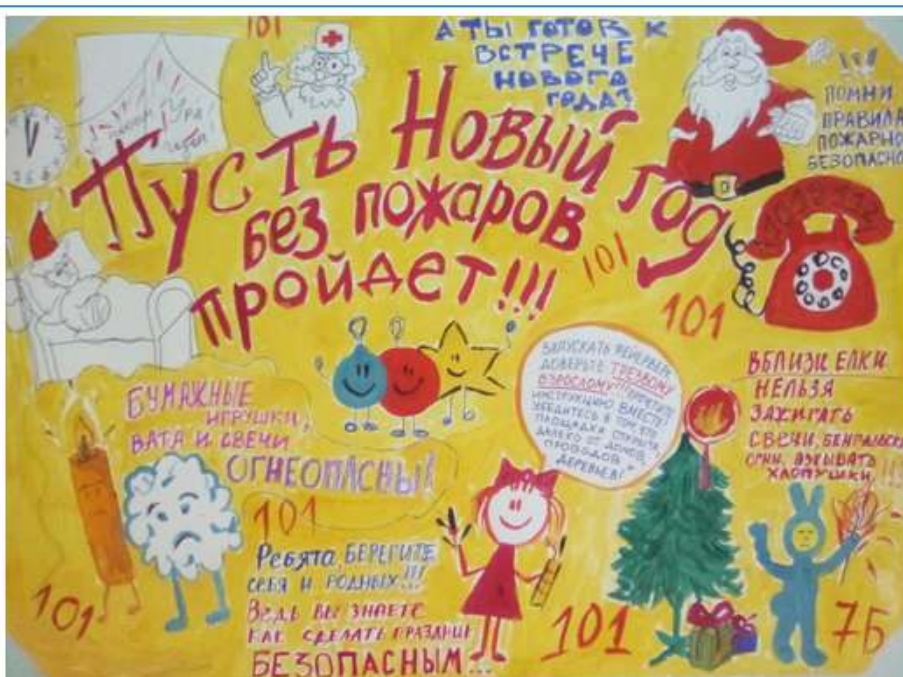 101
А ТЫ ГОТОВ К
ВСТРЕЧЕ
НОВОГО
ГОДА?
ПОМНИ
ПРАВИЛА
ПОЖАРНО
БЕЗОПАСНО
Пусть Новый год
без пожаров
пройдет!!!
101
101
БУМАЖНЫЕ
ИГРУШКИ,
ВАТА И СВЕЧИ
ОГНЕОПАСНЫ!
101
ЗАПУСКАТЬ ФЕЙЕРВЕРК
ДОВЕРЬТЕ ТРЕЗВОМУ
ВЗРОСЛОМУ!!!
ИНСТРУКЦИЮ ВМЕСТЕ!
УБЕДИТЕСЬ В ТОМ, ЧТО
ПЛОЩАДКА ОТКРЫТА,
ДАЛЕКО ОТ ДОМОВ,
ПРОВОДОВ
ДЕРЕВЬЕВ!
ВБЛИЗИ ЕЛКИ
НЕЛЬЗЯ
ЗАЖИГАТЬ
СВЕЧИ, БЕНГАЛЬСКИ
ОГНИ, ВЗРЫВАТЬ
ХЛОПУШКИ!!!
Ребята, БЕРЕГИТЕ
СЕБЯ И РОДНЫХ!!!
Ведь вы знаете
КАК СДЕЛАТЬ ПРАЗДНИК
БЕЗОПАСНЫМ...
101
101
7Б